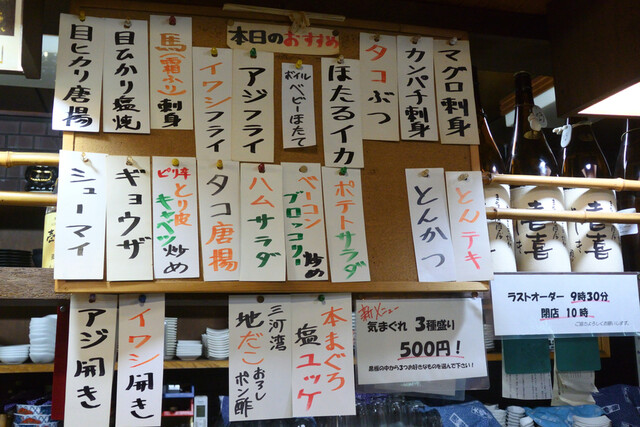 本日のおすすめ
マグロ刺身
カンパチ刺身
タコぶつ
ほたるイカ
ボイルベビーほたて
アジフライ
イワシフライ
馬(霜ふり)刺身
目ひかり塩焼
目ヒカリ唐揚
とんテキ
とんかつ
ポテトサラダ
ベーコンブロッコリー炒め
ハムサラダ
タコ唐揚
ピリ辛とり皮キャベツ炒め
ギョウザ
シューマイ
本まぐろ塩ユッケ
三河湾
地だこおろしポン酢
イワシ開き
アジ開き
新メニュー
気まぐれ 3種盛り
500円!
黒板の中から3つお好きなものを選んで下さい!
ラストオーダー 9時30分
閉店 10時
ご協力よろしくお願いします。